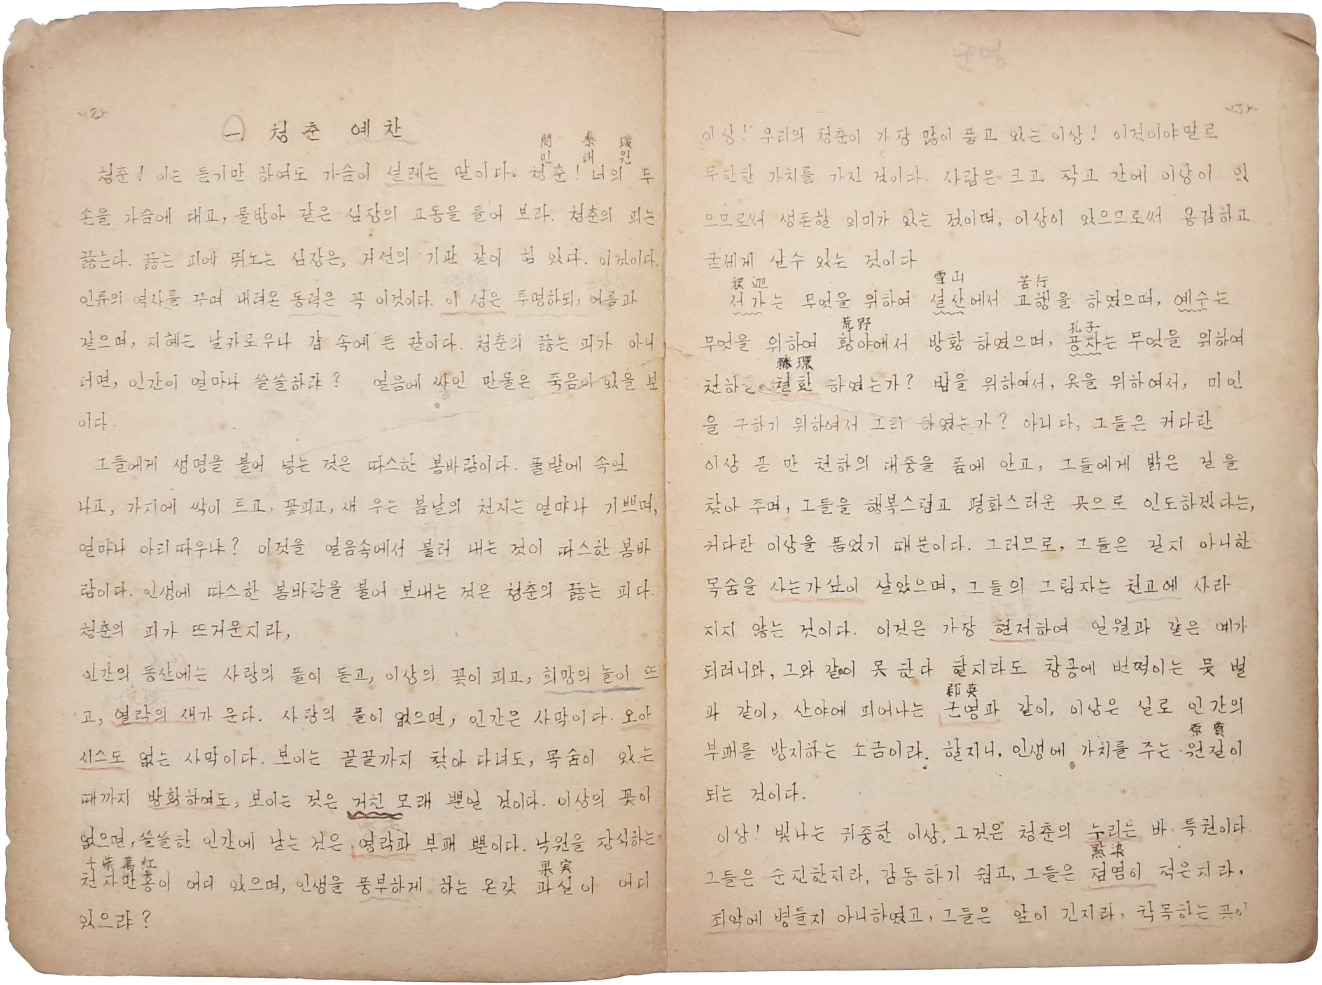 -2-
㊀ 청춘 예찬
閔 泰 瑗
민 태 원
청춘! 이는 듣기만 하여도 가슴이 설레는 말이다. 청춘! 너의 두
손을 가슴에 대고, 물방아 같은 심장의 고동을 들어 보라. 청춘의 피는
끓는다. 끓는 피에 뛰노는 심장은, 거선의 기관 같이 힘 있다. 이것이다.
인류의 역사를 꾸며 내려온 동력은 꼭 이것이다. 이 성은 투명하되, 어름과
같으며, 지혜는 날카로우나 갑 속에 든 칼이다. 청춘의 끓는 피가 아니
더면, 인간이 얼마나 쓸쓸하랴? 얼음에 싸인 만물은 죽음이 있을 뿐
이다.
그들에게 생명을 불어 넣는 것은 따스한 봄바람이다. 풀밭에 속잎
나고, 가지에 싹이 트고, 꽃피고, 새 우는 봄날의 천지는 얼마나 기쁘며,
얼마나 아리따우냐? 이것을 얼음속에서 불러 내는 것이 따스한 봄바
람이다. 인생에 따스한 봄바람을 불어 보내는 것은 청춘의 끓는 피다.
청춘의 피가 뜨거운지라,
인간의 동산에는 사랑의 풀이 돋고, 이상의 꽃이 피고, 희망의 놀이 뜨
고, 열락의 새가 운다. 사랑의 풀이 없으면, 인간은 사막이다. 오아
시스도 없는 사막이다. 보이는 끝끝까지 찾아 다녀도, 목숨이 있는
때까지 방황하여도, 보이는 것은 거친 모래 뿐일 것이다. 이상의 꽃이
없으면, 쓸쓸한 인간에 남는 것은 영락과 부패 뿐이다. 낙원을 장식하는
千紫萬紅 果実
천자만홍이 어디 있으며, 인생을 풍부하게 하는 온갖 과실이 어디
있으랴?
군영
-3-
이상! 우리의 청춘이 가장 많이 품고 있는 이상! 이것이야말로
무한한 가치를 가진 것이다. 사람은 크고 작고 간에 이상이 있
으므로써 생존할 의미가 있는 것이며, 이상이 있으므로써 용감하고
굳세게 살수 있는 것이다
釈迦 雪山 苦行
석가는 무엇을 위하여 설산에서 고행을 하였으며, 예수는
荒野 孔子
무엇을 위하여 황야에서 방황 하였으며, 공자는 무엇을 위하여
轍環
천하를 철환 하였는가? 밥을 위하여서, 옷을 위하여서, 미인
을 구하기 위하여서 그리 하였는가? 아니다, 그들은 커다란
이상 곧 만 천하의 대중을 품에 안고, 그들에게 밝은 길을
찾아 주며, 그들을 행복스럽고 평화스러운 곳으로 인도하겠다는,
커다란 이상을 품었기 때문이다. 그러므로, 그들은 길지 아니한
목숨을 사는가싶이 살았으며, 그들의 그림자는 천고에 사라
지지 않는 것이다. 이것은 가장 현저하여 일월과 같은 예가
되려니와, 그와 같이 못 한다 할지라도 창공에 번쩍이는 뭇 별
群英
과 같이, 산야에 피어나는 군영과 같이, 이상은 실로 인간의
原質
부패를 방지하는 소금이라. 할지니, 인생에 가치를 주는 원질이
되는 것이다.
이상! 빛나는 귀중한 이상, 그것은 청춘의 누리는 바 특권이다.
點染
그들은 순진한지라, 감동하기 쉽고, 그들은 점염이 적은지라,
죄악에 병들지 아니하였고, 그들은 앞이 긴지라, 착목하는 곳이